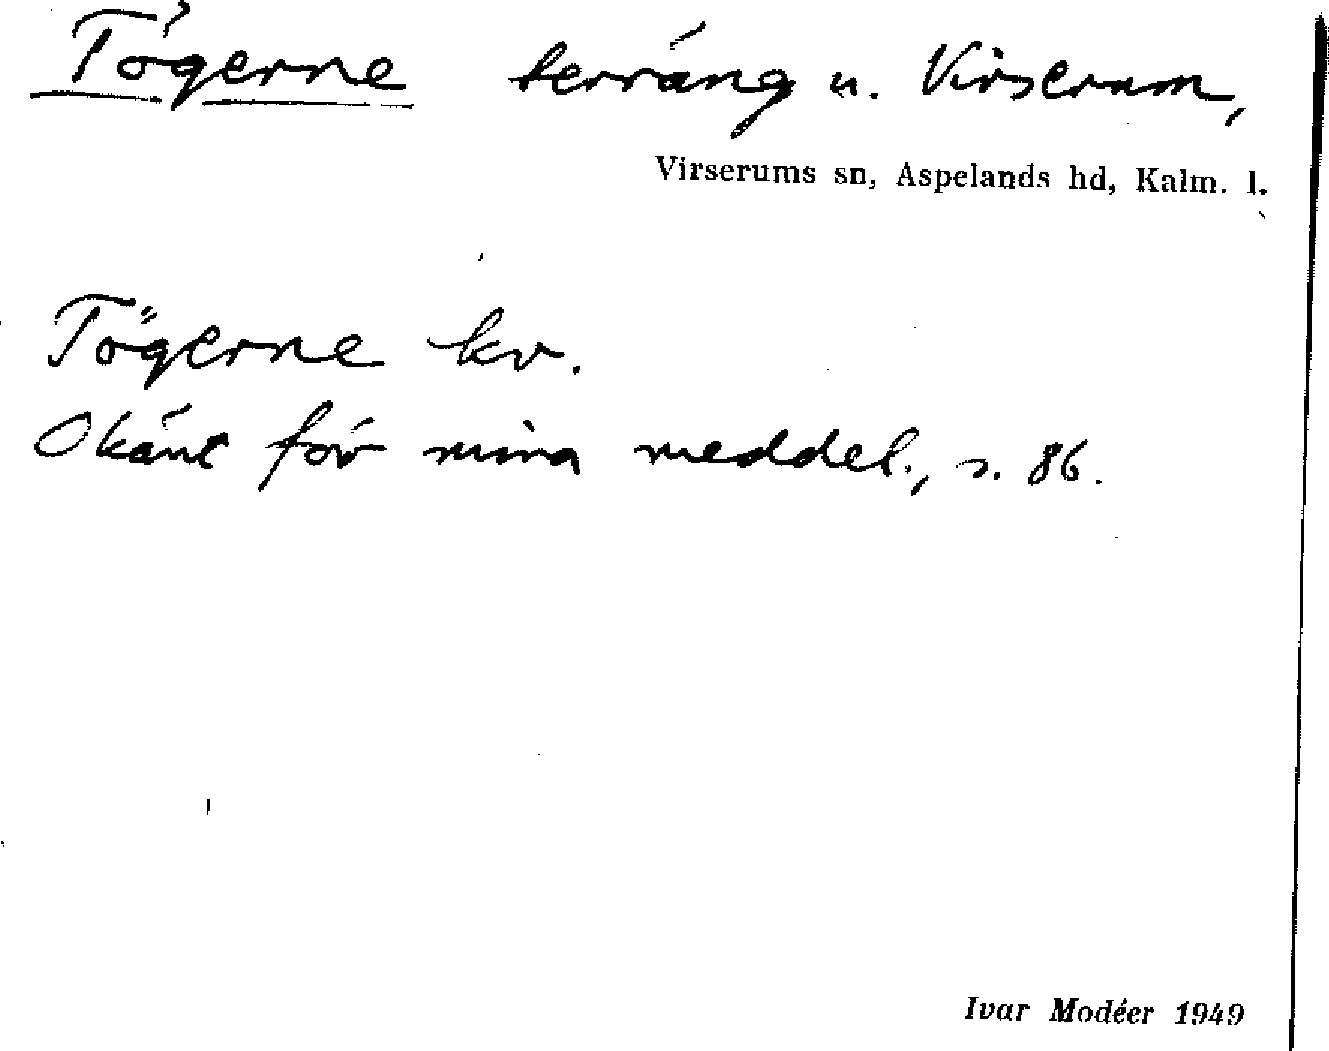 Tögerne terräng u. Virserum,
Virserums sn, Aspelands hd, Kalm. l.
Tögerne kv.
Okänt för mina meddel., s. 86.
Ivar Modéer 1949